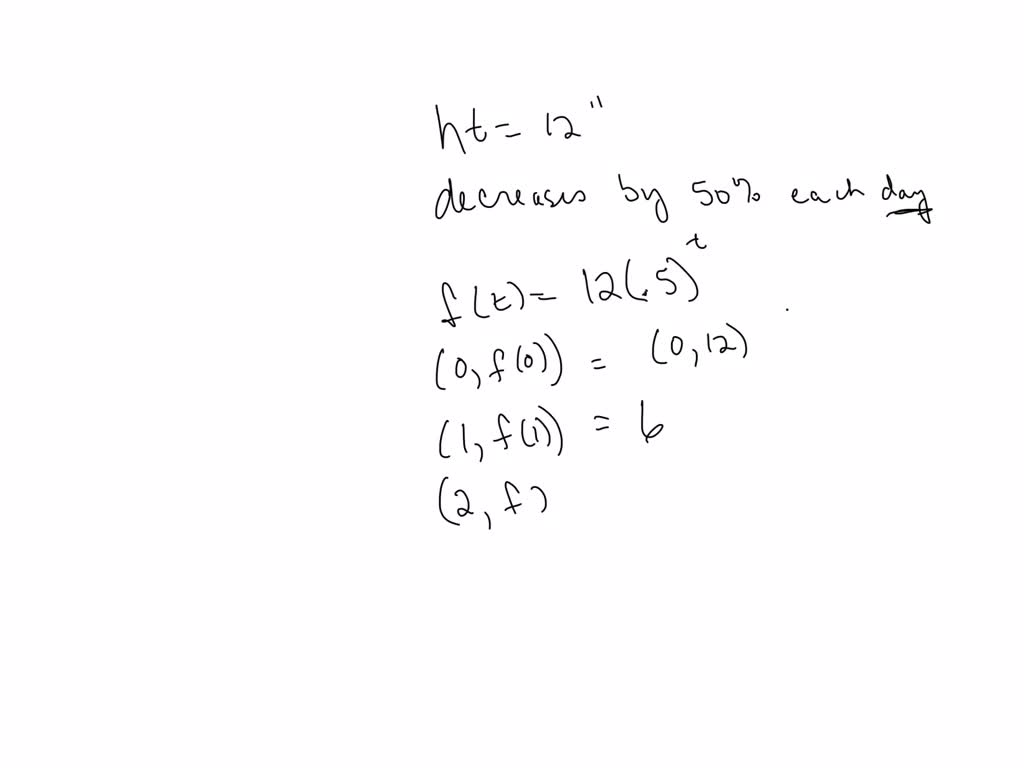 ht = 12"
decreases by 50% each day
f(t) = 12(.5)^t
(0, f(0)) = (0, 12)
(1, f(1)) = 6
(2, f)